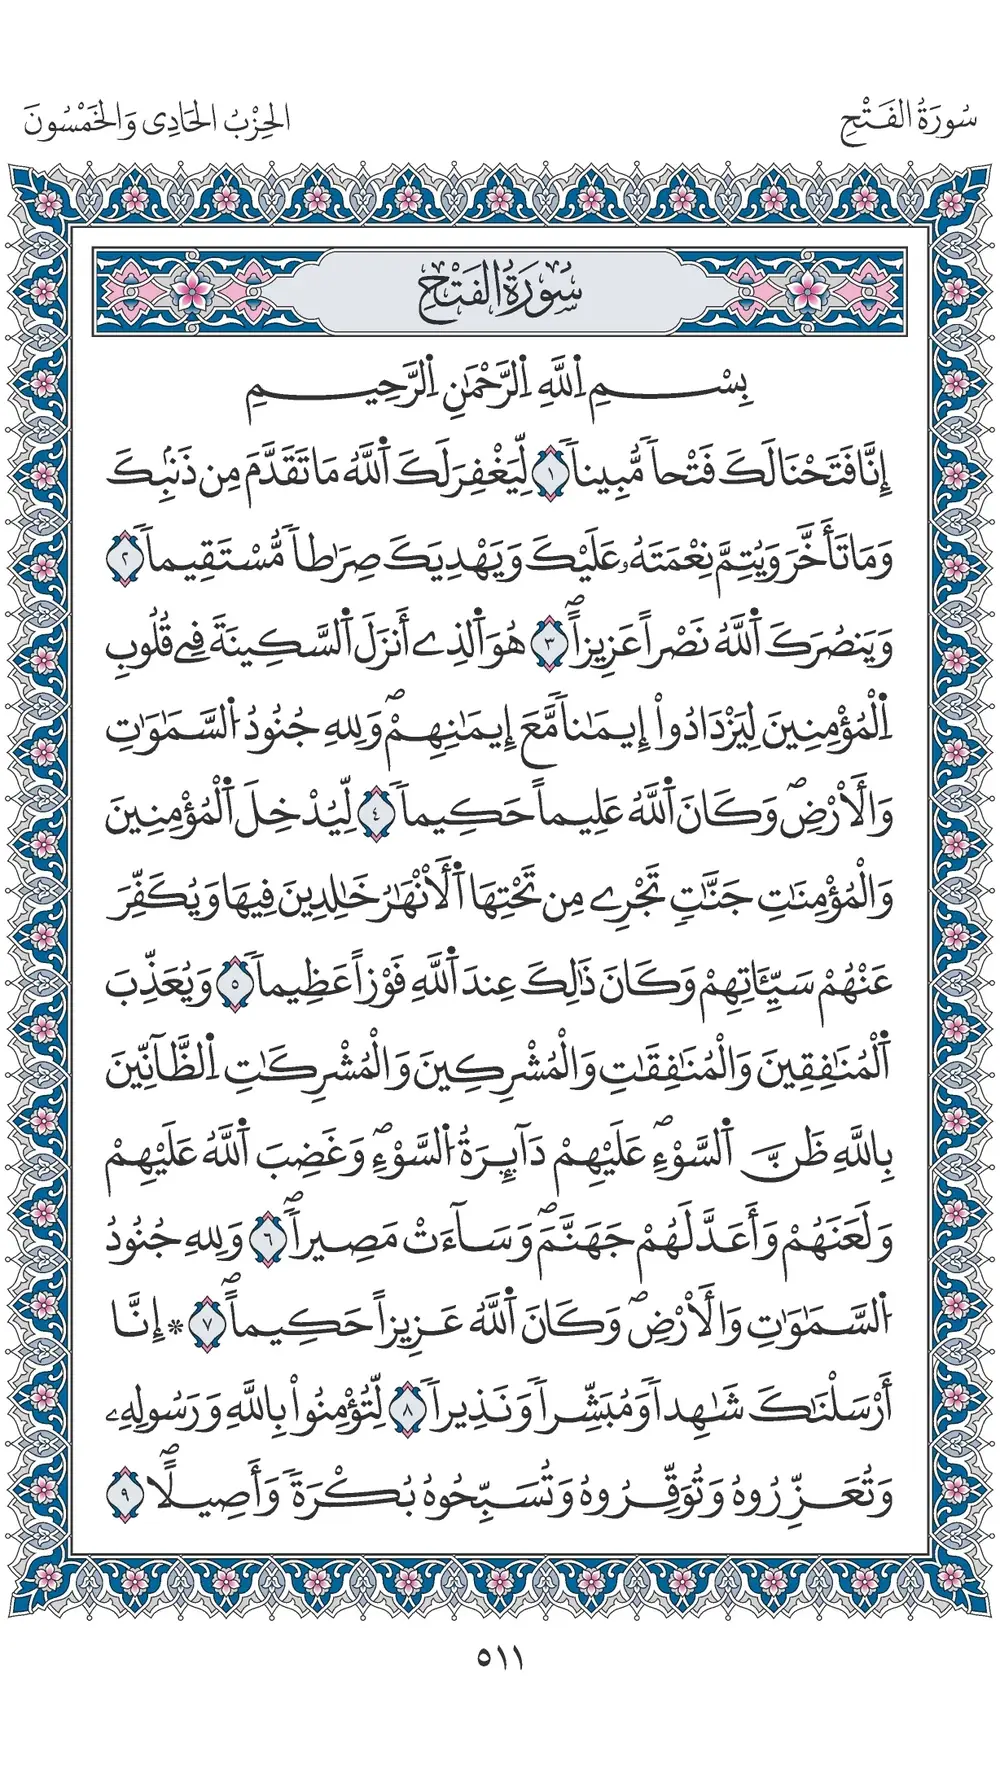 سُورَةُ الفَتْحِ
الحِزْبُ الحَادِي وَالخَمْسُونَ
سُورَةُ الفَتْحِ
بِسْمِ اِ۬للَّهِ اِ۬لرَّحْمَٰنِ اِ۬لرَّحِيمِ
إِنَّا فَتَحْنَا لَكَ فَتْحاٗ مُّبِيناٗ ١ لِّيَغْفِرَ لَكَ اَ۬للَّهُ مَا تَقَدَّمَ مِن ذَنۢبِكَ
وَمَا تَأَخَّرَ وَيُتِمَّ نِعْمَتَهُۥ عَلَيْكَ وَيَهْدِيَكَ صِرَٰطاٗ مُّسْتَقِيماٗ ٢
وَيَنصُرَكَ اَ۬للَّهُ نَصْراً عَزِيزاًۖ ٣ هُوَ اَ۬لذِے أَنزَلَ اَ۬لسَّكِينَةَ فِے قُلُوبِ
اِ۬لْمُؤْمِنِينَ لِيَزْدَادُواْ إِيمَٰناٗ مَّعَ إِيمَٰنِهِمْۖ وَلِلهِ جُنُودُ اُ۬لسَّمَٰوَٰتِ
وَالْأَرْضِۖ وَكَانَ اَ۬للَّهُ عَلِيماً حَكِيماٗ ٤ لِّيُدْخِلَ اَ۬لْمُؤْمِنِينَ
وَالْمُؤْمِنَٰتِ جَنَّٰتٖ تَجْرِے مِن تَحْتِهَا اَ۬لْأَنْهَٰرُ خَٰلِدِينَ فِيهَا وَيُكَفِّرَ
عَنْهُمْ سَيِّـَٔاتِهِمْ وَكَانَ ذَٰلِكَ عِندَ اَ۬للَّهِ فَوْزاً عَظِيماٗ ٥ وَيُعَذِّبَ
اَ۬لْمُنَٰفِقِينَ وَالْمُنَٰفِقَٰتِ وَالْمُشْرِكِينَ وَالْمُشْرِكَٰتِ اِ۬لظَّآنِّينَ
بِاللَّهِ ظَنَّ اَ۬لسَّوْءِۖ عَلَيْهِمْ دَآئِرَةُ اُ۬لسَّوْءِۖ وَغَضِبَ اَ۬للَّهُ عَلَيْهِمْ
وَلَعَنَهُمْ وَأَعَدَّ لَهُمْ جَهَنَّمَۖ وَسَآءَتْ مَصِيراٗۖ ٦ وَلِلهِ جُنُودُ
اُ۬لسَّمَٰوَٰتِ وَالْأَرْضِۖ وَكَانَ اَ۬للَّهُ عَزِيزاً حَكِيماًۖ ٧ * إِنَّا
أَرْسَلْنَٰكَ شَٰهِداٗ وَمُبَشِّراٗ وَنَذِيراٗ ٨ لِّتُؤْمِنُواْ بِاللَّهِ وَرَسُولِهِۦ
وَتُعَزِّرُوهُ وَتُوَقِّرُوهُ وَتُسَبِّحُوهُ بُكْرَةٗ وَأَصِيلاًۖ ٩
٥١١